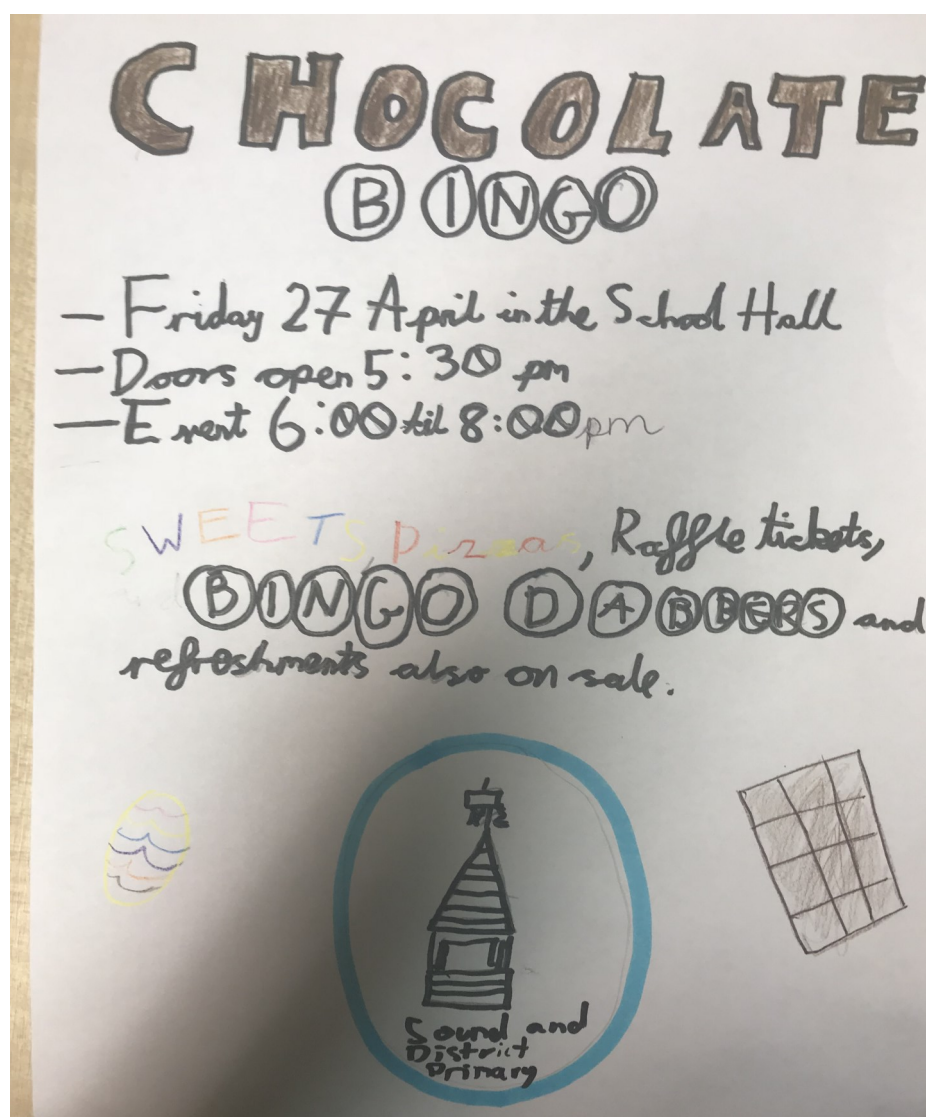 CHOCOLATE
BINGO
- Friday 27 April in the School Hall
- Doors open 5:30 pm
- Event 6:00 til 8:00pm
SWEETS, pizzas, Raffle tickets,
BINGO DABBERS and
refreshments also on sale.
Sound and
District
Primary